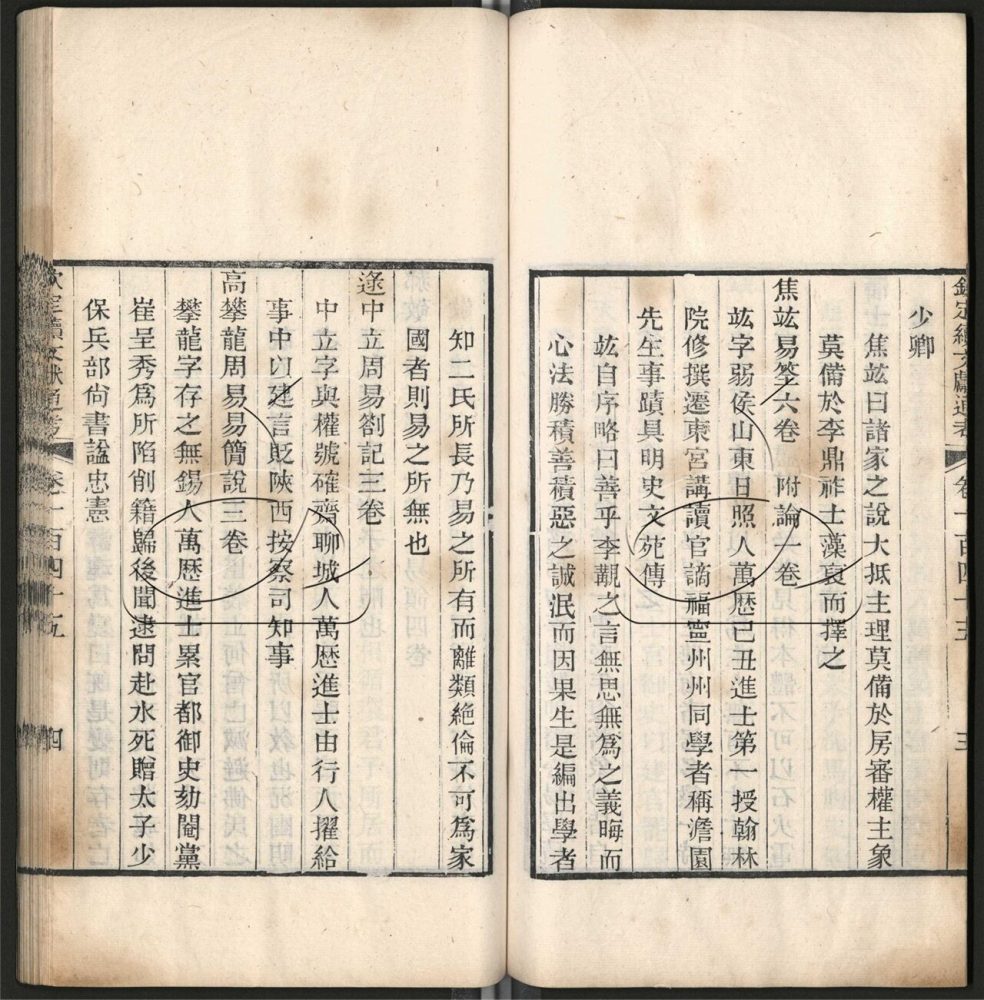 欽定續文獻通考 卷一百四十五 三
少卿
焦竑曰諸家之說大抵主理莫備於房審權主象
莫備於李鼎祚士藻裒而擇之
焦竑易筌六卷 附論一卷
竑字弱侯山東日照人萬歷己丑進士第一授翰林
院修撰遷東宮講讀官謫福寧州州同學者稱澹園
先生事蹟具明史文苑傳
竑自序略曰善乎李覯之言無思無爲之義晦而
心法勝積善積惡之誡泯而因果生是編出學者
知二氏所長乃易之所有而離類絕倫不可爲家
國者則易之所無也
逯中立周易劄記三卷
中立字與權號確齋聊城人萬歷進士由行人擢給
事中以建言貶陝西按察司知事
高攀龍周易易簡說三卷
攀龍字存之無錫人萬歷進士累官都御史劾閹黨
崔呈秀爲所陷削籍歸後聞逮問赴水死贈太子少
保兵部尚書諡忠憲
欽定續文獻通考 卷一百四十五 四